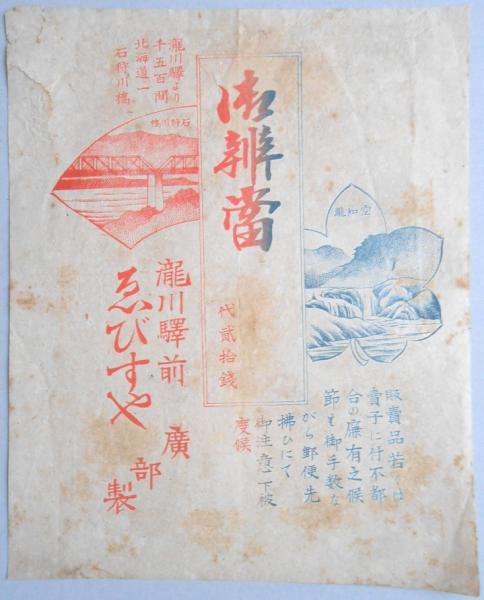 御辨當
代貳拾錢
空知瀧
販賣品若くは
賣子に付不都
合の廉有之候
節は御手數な
がら郵便先
拂ひにて
御注意下被
度候
瀧川驛より
千五百間
北海道一
石狩川橋
石狩川橋
瀧川驛前
ゑびすや
廣部製